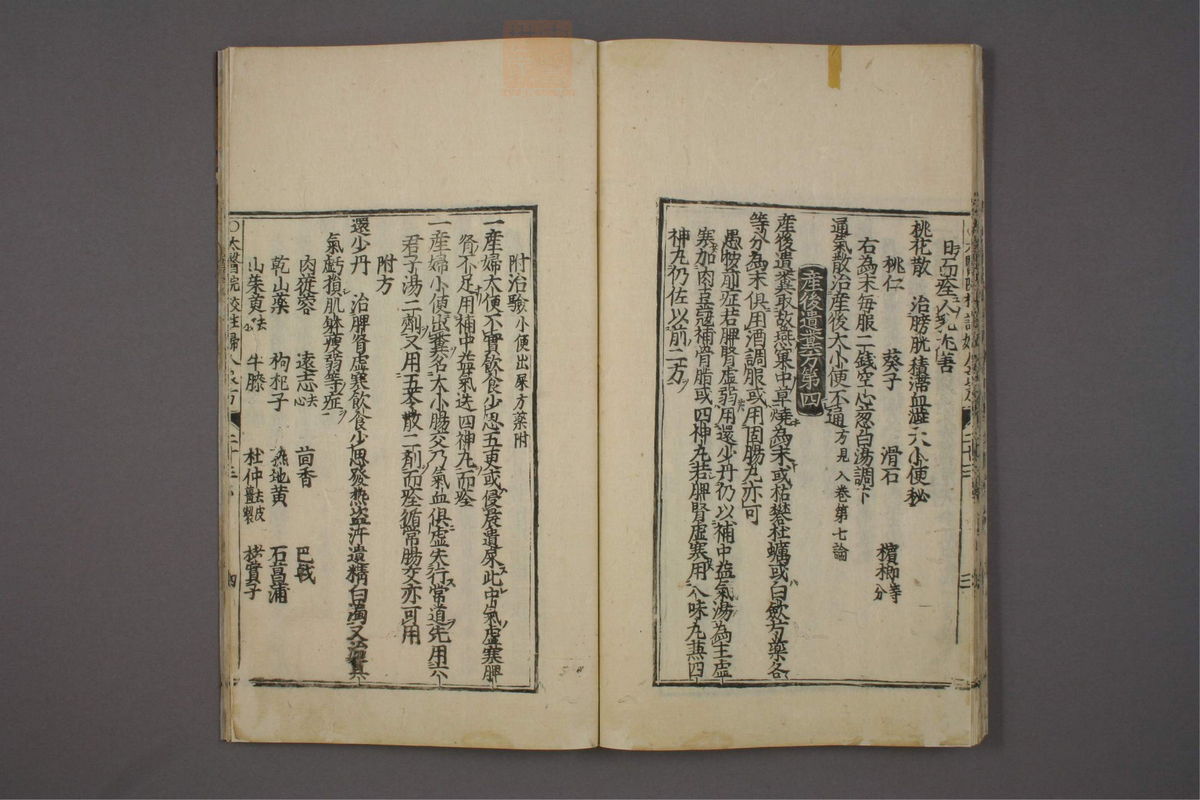 桃花散 治膀胱積滯血澁大小便秘
桃仁 葵子 滑石 檳榔等分
右為末每服二錢空心葱白湯調下
通氣散治産後大小便不通方見入卷第七論
産後遺糞方第四
産後遺糞取故燕窠中草燒為末或枯礬牡蠣或白歛芍藥各
等分為末俱用酒調服或用固腸丸亦可
愚按前症若脾腎虛弱用還少丹仍以補中益氣湯為主虛
寒加肉豆蔻補骨脂或四神丸若脾腎虛寒用八味丸兼四
神丸仍佐以前二方
附治驗小便出屎方藥附
一産婦大便不實飲食少思五更或侵晨遺屎此中氣虛寒脾
腎不足用補中益氣送四神丸而痊
一産婦小便出糞名大小腸交乃氣血俱虛失行常道先用六
君子湯二劑又用五苓散二劑而痊循常腸交亦可用
附方
還少丹 治脾腎虛寒飲食少思發熱盜汗遺精白濁又治真
氣虧損肌躰瘦弱等症
肉蓯蓉 遠志去心 茴香 巴戟
乾山藥 枸杞子 熟地黃 石菖浦
山茱萸去 牛膝 杜仲去皮薑製 楮實子
○太醫院校註婦人良方 二十三 四